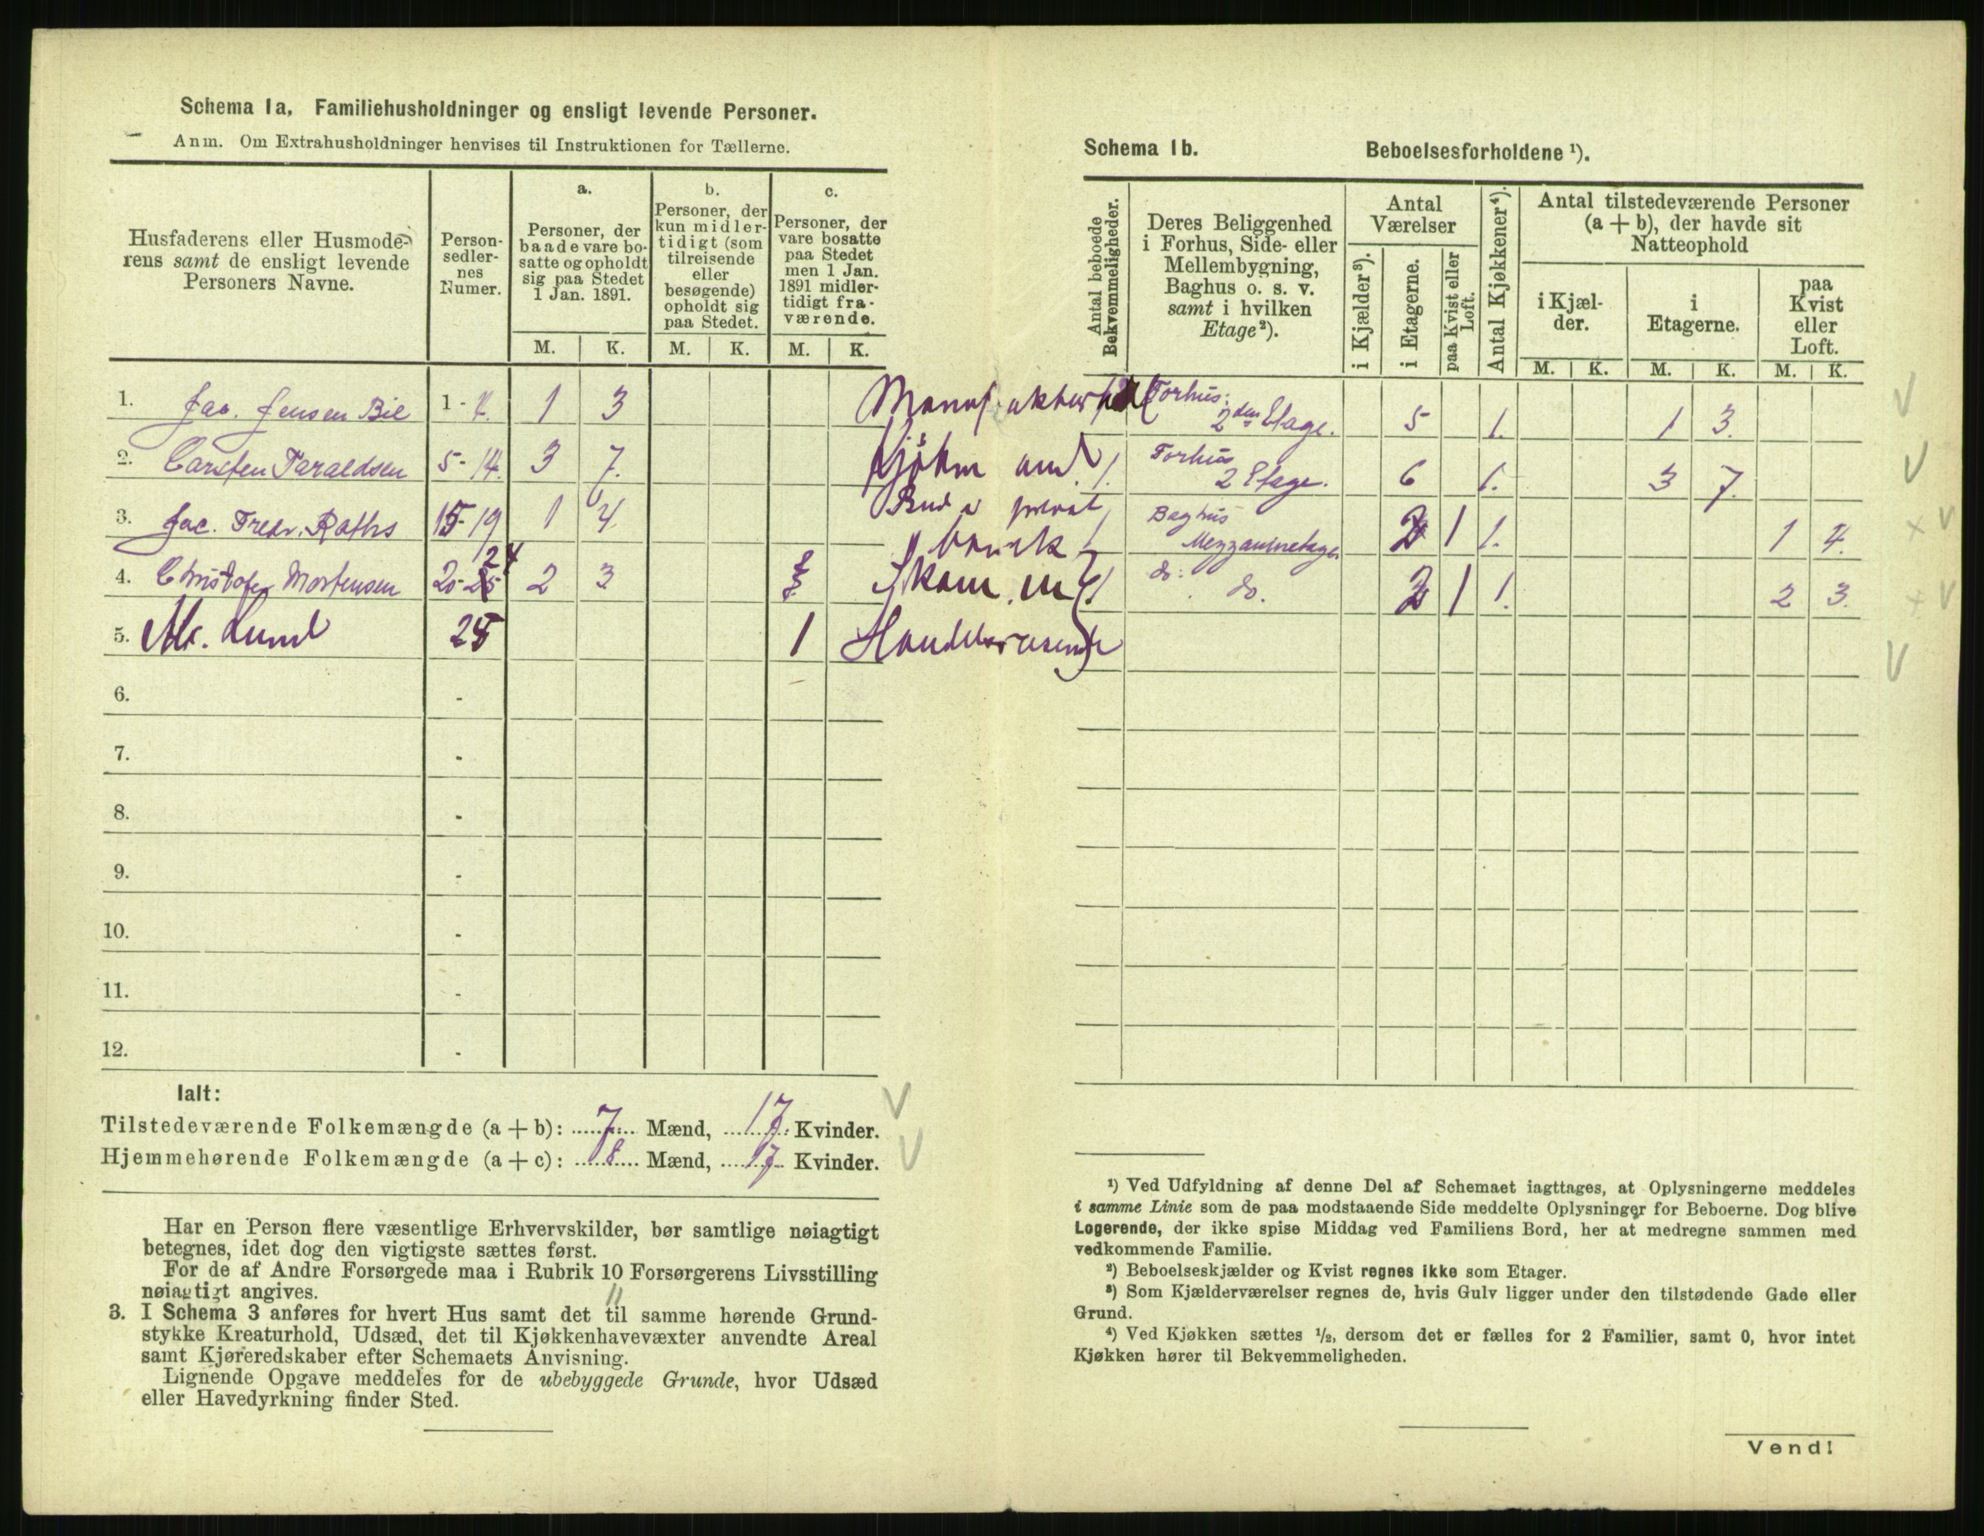 Schema 1a. Familiehusholdninger og ensligt levende Personer.
Anm. Om Extrahusholdninger henvises til Instruktionen for Tællerne.
Husfaderens eller Husmode-
rens samt de ensligt levende
Personers Navne.
Person-
sedler-
nes
Numer.
a.
Personer, der
baade vare bo-
satte og opholdt
sig paa Stedet
1 Jan. 1891.
b.
Personer, der
kun midler-
tidigt (som
tilreisende
eller
besøgende)
opholdt sig
paa Stedet.
c.
Personer, der
vare bosatte
paa Stedet
men 1 Jan.
1891 midler-
tidigt fra-
værende.
M. K. M. K. M. K.
1. Jac. Jensen Bie 1-4. 1 3
2. Carsten Taraldsen 5-14. 3 7.
3. Jac. Fredr. Raths 15-19 1 4
4. Christofer Mortensen 20-24 2 3
5. Mr. Lund 25 1 Handelsreisende
6. -
7. -
8. -
9. -
10. -
11. -
12. -
Ialt:
Tilstedeværende Folkemængde (a + b): 7 Mænd, 17 Kvinder.
Hjemmehørende Folkemængde (a + c): 8 Mænd, 17 Kvinder.
Har en Person flere væsentlige Erhvervskilder, bør samtlige nøiagtigt
betegnes, idet dog den vigtigste sættes først.
For de af Andre Forsørgede maa i Rubrik 10 Forsørgerens Livsstilling
nøiagtigt angives.
3. I Schema 3 anføres for hvert Hus samt det til samme hørende Grund-
stykke Kreaturhold, Udsæd, det til Kjøkkenhavevæxter anvendte Areal
samt Kjøreredskaber efter Schemaets Anvisning.
Lignende Opgave meddeles for de ubebyggede Grunde, hvor Udsæd
eller Havedyrkning finder Sted.
Schema 1b. Beboelsesforholdene ¹).
Antal beboede
Bekvemmeligheder.
Deres Beliggenhed
i Forhus, Side- eller
Mellembygning,
Baghus o. s. v.
samt i hvilken
Etage²).
Antal
Værelser
i Kjælder³).
i Etagerne.
paa Kvist eller
Loft.
Antal Kjøkkener⁴).
Antal tilstedeværende Personer
(a + b), der havde sit
Natteophold
i Kjæl-
der.
i
Etagerne.
paa
Kvist
eller
Loft.
M. K. M. K. M. K.
Forhus:
2den Etage. 5 1. 1 3.
Forhus
2 Etage. 6 1. 3 7.
Baghus
Mezzaninetage. 1 1. 1 4.
do. do. 1 1. 2 3.
¹) Ved Udfyldning af denne Del af Schemaet iagttages, at Oplysningerne meddeles
i samme Linie som de paa modstaaende Side meddelte Oplysninger for Beboerne. Dog blive
Logerende, der ikke spise Middag ved Familiens Bord, her at medregne sammen med
vedkommende Familie.
²) Beboelseskjælder og Kvist regnes ikke som Etager.
³) Som Kjælderværelser regnes de, hvis Gulv ligger under den tilstødende Gade eller
Grund.
⁴) Ved Kjøkken sættes ½, dersom det er fælles for 2 Familier, samt 0, hvor intet
Kjøkken hører til Bekvemmeligheden.
Vend!